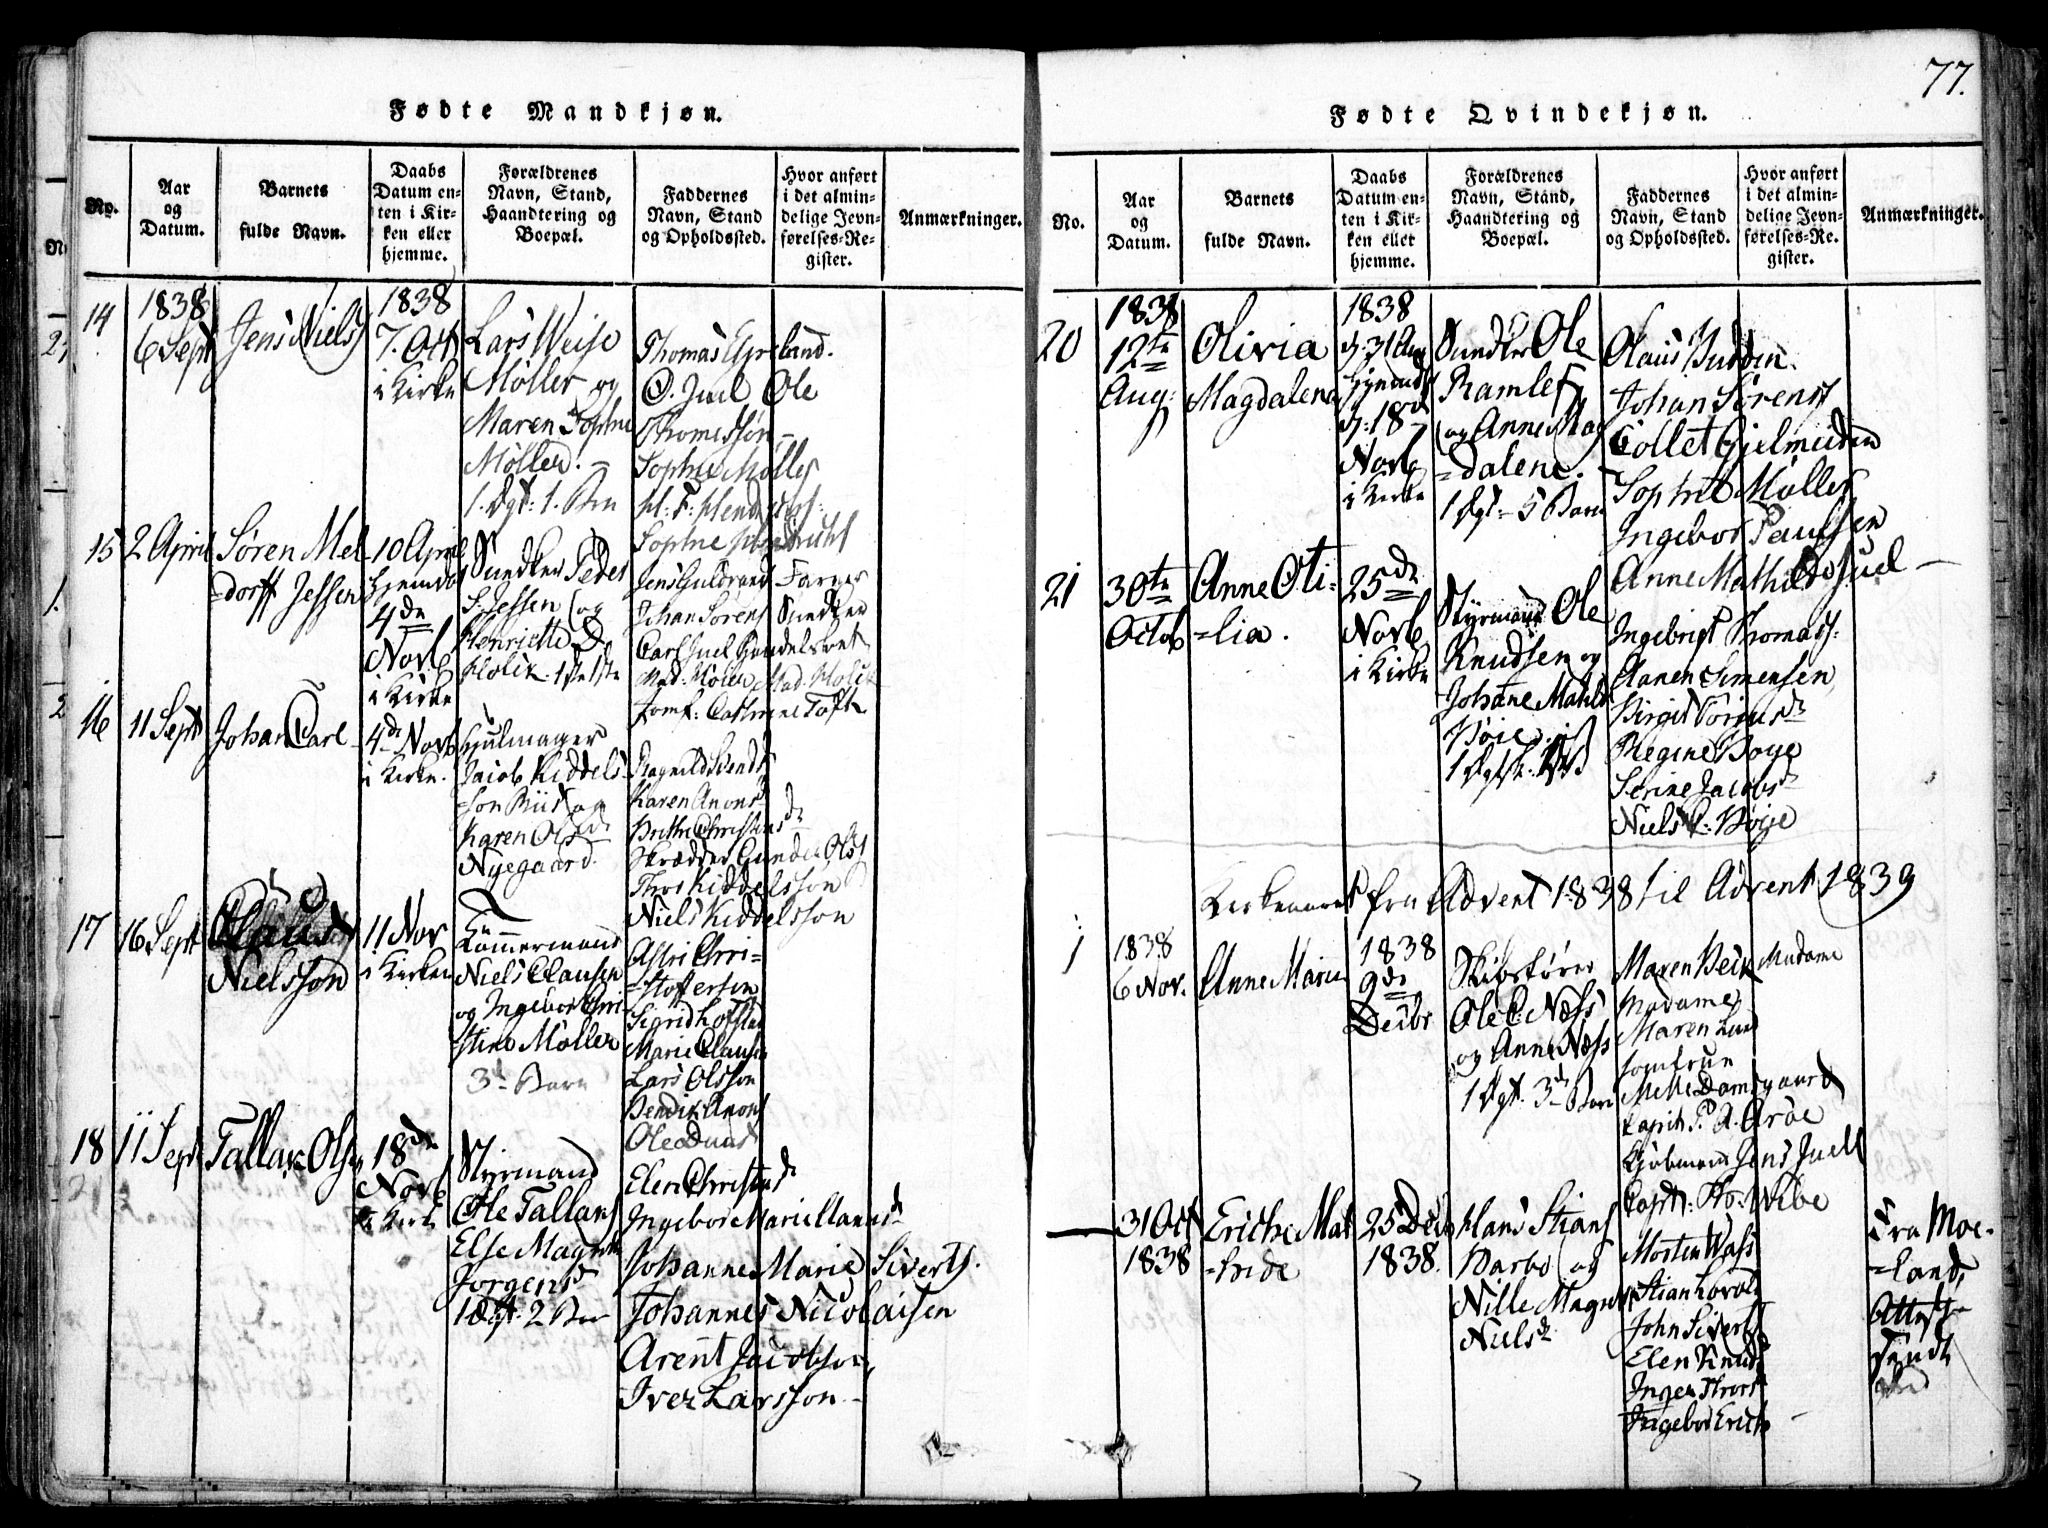 77.
Fødte Mandkjøn.
No.
Aar
og
Datum.
Barnets
fulde Navn.
Daabs
Datum en-
ten i Kir-
ken eller
hjemme.
Forældrenes
Navn, Stand,
Haandtering og
Boepæl.
Faddernes
Navn, Stand
og Opholdssted.
Hvor anført
i det almin-
delige Jevn-
førelses-Re-
gister.
Anmærkninger.
14
1838
6 Sept
Jens Niels
1838
7. Oct
i Kirke
Lars Weise
Møller og
Maren Sophie
Møller.
1. Ægt: 1. Brn
Thomas
O. Juel Ole
Thomessøn
Sophie Møller
Sophie
15
2 April
Søren Mel
=dorff Jessen
10 April
hjemdøbt
4de
Novb
i Kirke
Sundker Peder
S. Jessen og
Henriette D
Holck.
Jens Guldrand Farger
Johan Sørens Sundker
Carl Juel
Mad. Møller Mad. Holck
Jomf: Cathrine Toft
16
11 Sept
Johan Carl
4de Novb
i Kirke.
Hjulmager
Jacob Kiddels
=son Riis og
Karen Olsd
Nyegaard.
Ragnild
Karen Anons
Brithe Christensd
Skrædder Gunder Olss
Thor Kiddelsson
Niels Kiddelsson
17
16 Sept
Claus
Nielssøn
11 Nov
i Kirken
Tømmermand
Niels Clausen
og Ingebor Chri
stine Møller
3de Barn
Astri Chri=
=stoffersen
Sigrid Lofstad
Marie Clausen
Lars Olsson
Bendix Anons
Ole
18
11 Sept
Tallak Olsen
18de
Novb
i Kirke
Styrmand
Ole Tallaks
Else Magrethe
Jørgensd
1 Ægt. 2 Brn
Elen Christensd
Ingebor Marie Hansd
Johanne Marie Siverts.
Johannes Nicolaisen
Arent Jacobson,
Iver Larsson
Fødte Qvindekjøn.
No.
Aar
og
Datum.
Barnets
fulde Navn.
Daabs
Datum en-
ten i Kir-
ken eller
hjemme.
Forældrenes
Navn, Stand,
Haandtering og
Boepæl.
Faddernes
Navn, Stand
og Opholdssted.
Hvor anført
i det almin-
delige Jevn-
førelses-Re-
gister.
Anmærkninger.
20
1838
12te
Aug:
Olivia
Magdalena
1838
d. 31 Aug
hjemd
d. 18de
Novb
i Kirke
Sundker Ole
Ramlef
og Anne Mag
=dalene.
1 Ægt 5 Barn
Olaus Budden.
Johan Sørens
Collet Gjelmeiden
Sophie Møller
Ingebor Paulsen
Anne Mathilde Juel
21
30te
Octob
Anne Oti=
=lia.
25de
Novb
i Kirke
Styrmand Ole
Knudsen og
Johane Mathilde
Bøie.
Ingebrigt Thomass:
Aanen Simensen
Birgit Jørgensd
Regine Boye
Serine Jacobsd
Niels Bøye
Kirkeaaret fra Advent 1838 til Advent 1839
1
1838
6 Nov.
Anne Marie
1838
9de
Decbr
Skibsfører
Ole C: Næss
og Anne Næss
1 Ægt. 3de Barn
Maren Beck Madame
Madame
Maren Lund
Jomfrue
Mette Damsgaard
Capit P. A. Aröe
Kjøbmand Jens Juell
Capt: Ths: Wibe
31 Oct
1838
Eriche Mat
=hilde
25 Decb
1838.
Hans Stians
Barbo og
Nille Magrete
Nielsd
Morten Wass
Stian
John Siverts
Elen Knudsd
Inger Thorsd
Ingebor Erichs
Fra Moe-
=land,
Attest